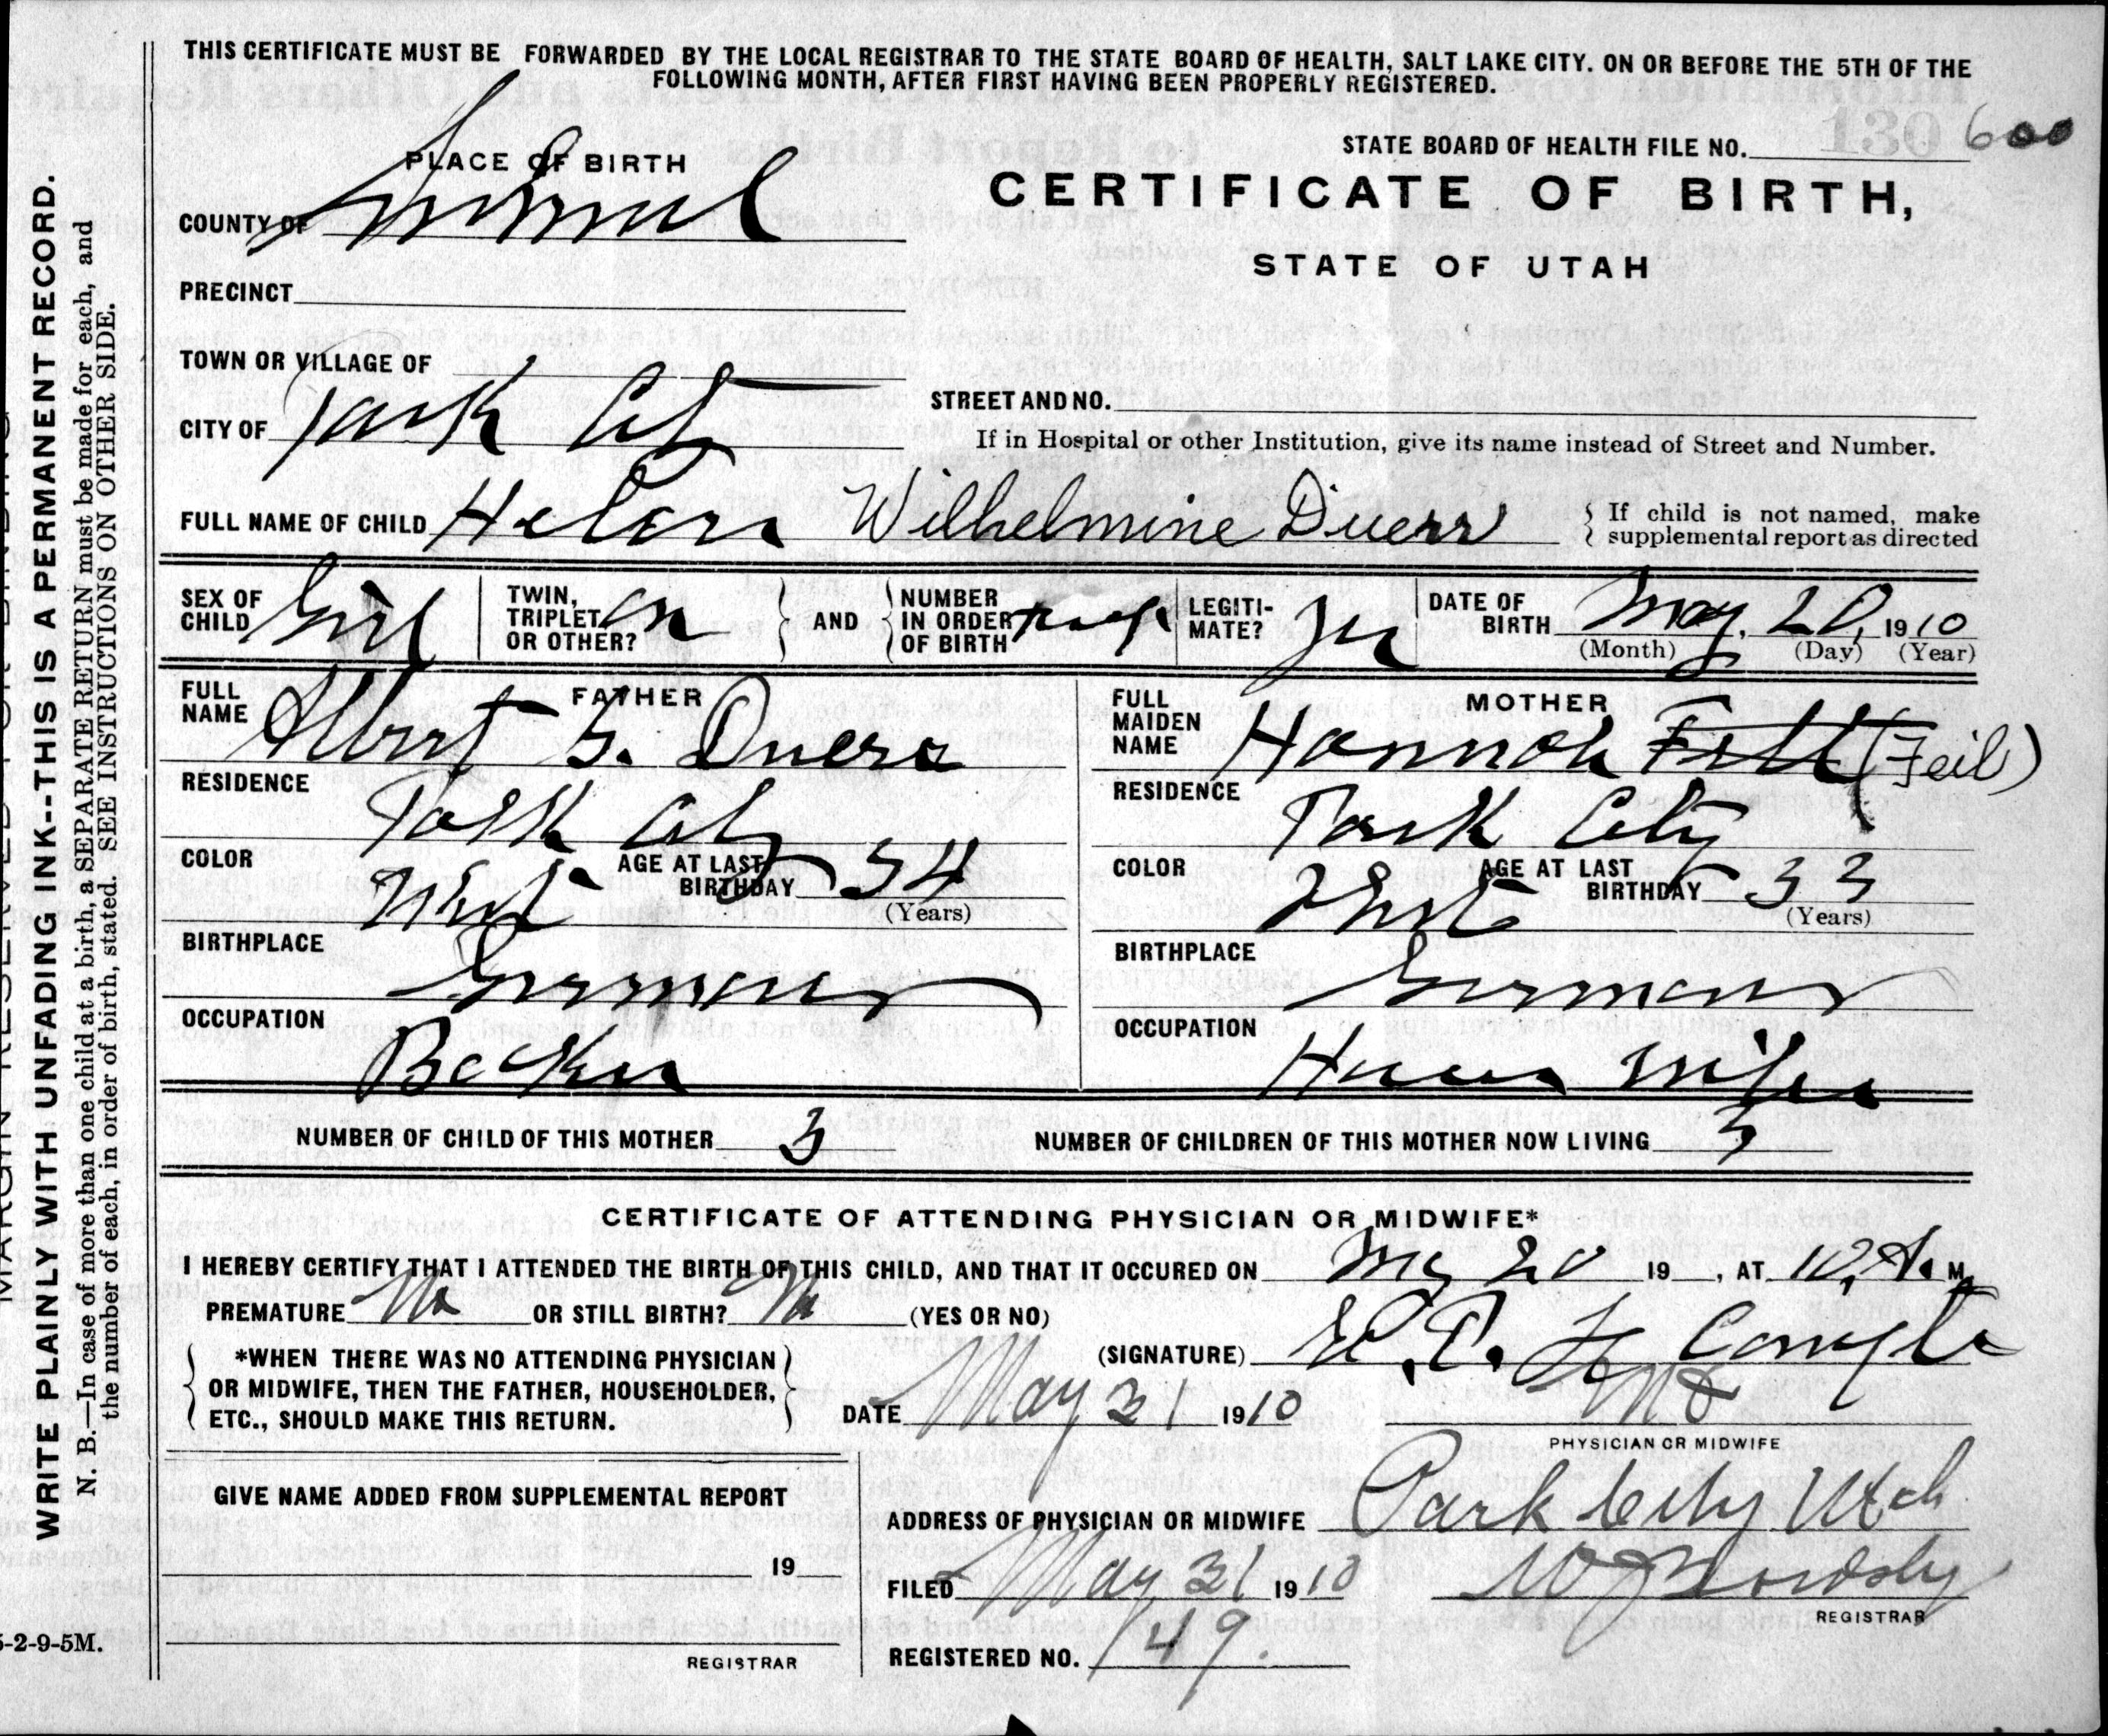 THIS CERTIFICATE MUST BE FORWARDED BY THE LOCAL REGISTRAR TO THE STATE BOARD OF HEALTH, SALT LAKE CITY. ON OR BEFORE THE 5TH OF THE
FOLLOWING MONTH, AFTER FIRST HAVING BEEN PROPERLY REGISTERED.
STATE BOARD OF HEALTH FILE NO. 130 600
PLACE OF BIRTH
CERTIFICATE OF BIRTH,
STATE OF UTAH
COUNTY OF Summit
PRECINCT
TOWN OR VILLAGE OF
CITY OF Park City
STREET AND NO.
If in Hospital or other Institution, give its name instead of Street and Number.
FULL NAME OF CHILD Helen Wilhelmine Duerr
If child is not named, make
supplemental report as directed
SEX OF CHILD Girl
TWIN, TRIPLET OR OTHER?
AND
NUMBER IN ORDER OF BIRTH
LEGITI-MATE? Yes
DATE OF BIRTH May 20, 1910
(Month) (Day) (Year)
FATHER
FULL NAME Albert G. Duerr
RESIDENCE Park City
COLOR White
AGE AT LAST BIRTHDAY 34
(Years)
BIRTHPLACE Germany
OCCUPATION Baker
MOTHER
FULL MAIDEN NAME Hannah (Feil)
RESIDENCE Park City
COLOR White
AGE AT LAST BIRTHDAY 33
(Years)
BIRTHPLACE Germany
OCCUPATION House Wife
NUMBER OF CHILD OF THIS MOTHER 3
NUMBER OF CHILDREN OF THIS MOTHER NOW LIVING 3
CERTIFICATE OF ATTENDING PHYSICIAN OR MIDWIFE*
I HEREBY CERTIFY THAT I ATTENDED THE BIRTH OF THIS CHILD, AND THAT IT OCCURED ON May 20 19 , AT 10 A. M.
PREMATURE No OR STILL BIRTH? No (YES OR NO)
*WHEN THERE WAS NO ATTENDING PHYSICIAN
OR MIDWIFE, THEN THE FATHER, HOUSEHOLDER,
ETC., SHOULD MAKE THIS RETURN.
(SIGNATURE) E. P. Le Compte
MD
PHYSICIAN OR MIDWIFE
DATE May 31 1910
GIVE NAME ADDED FROM SUPPLEMENTAL REPORT
19
REGISTRAR
ADDRESS OF PHYSICIAN OR MIDWIFE Park City Utah
FILED May 31 1910
REGISTRAR
REGISTERED NO. 149.
WRITE PLAINLY WITH UNFADING INK--THIS IS A PERMANENT RECORD.
N. B.—In case of more than one child at a birth, a SEPARATE RETURN must be made for each, and
the number of each, in order of birth, stated. SEE INSTRUCTIONS ON OTHER SIDE.
5-2-9-5M.